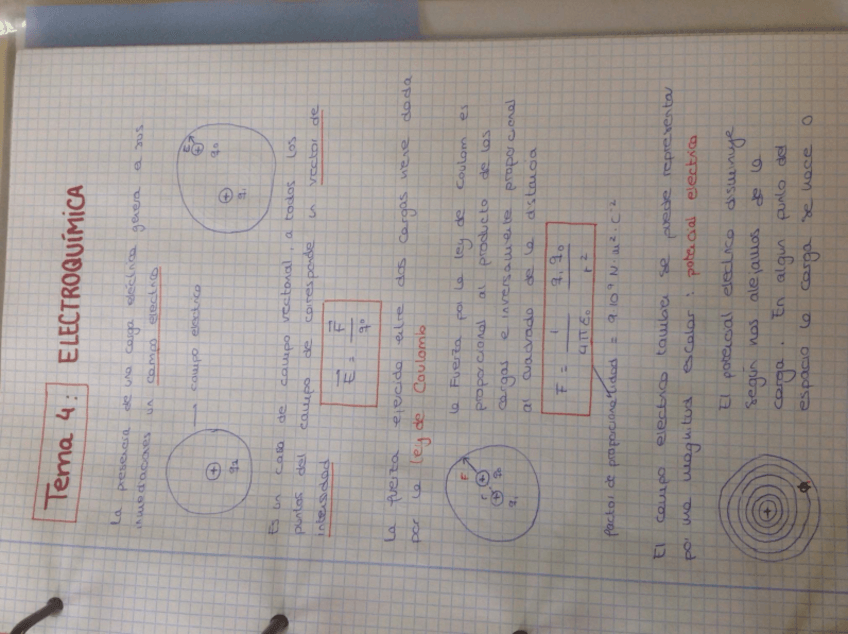 Tema 4: ELECTROQUÍMICA
La presencia de una carga eléctrica genera a sus
inmediaciones un campo eléctrico
q2
campo eléctrico
q1
E
q0
Es un caso de campo vectorial. a todos los
puntos del campo de corresponde un vector de
intensidad
E = F / q0
La fuerza ejercida entre dos cargas viene dada
por la ley de Coulomb
F
r
q0
q1
La Fuerza por la ley de Coulom es
proporcional al producto de las
cargas e inversamente proporcional
al cuadrado de la distancia
F = 1 / 4πε0 q1 q0 / r²
factor de proporcionalidad = 9·10⁹ N·m²·C⁻²
El campo eléctrico también se puede representar
por una magnitud escalar: potencial eléctrico
El potencial eléctrico disminuye
según nos alejamos de la
carga. En algún punto del
espacio la carga se hace 0